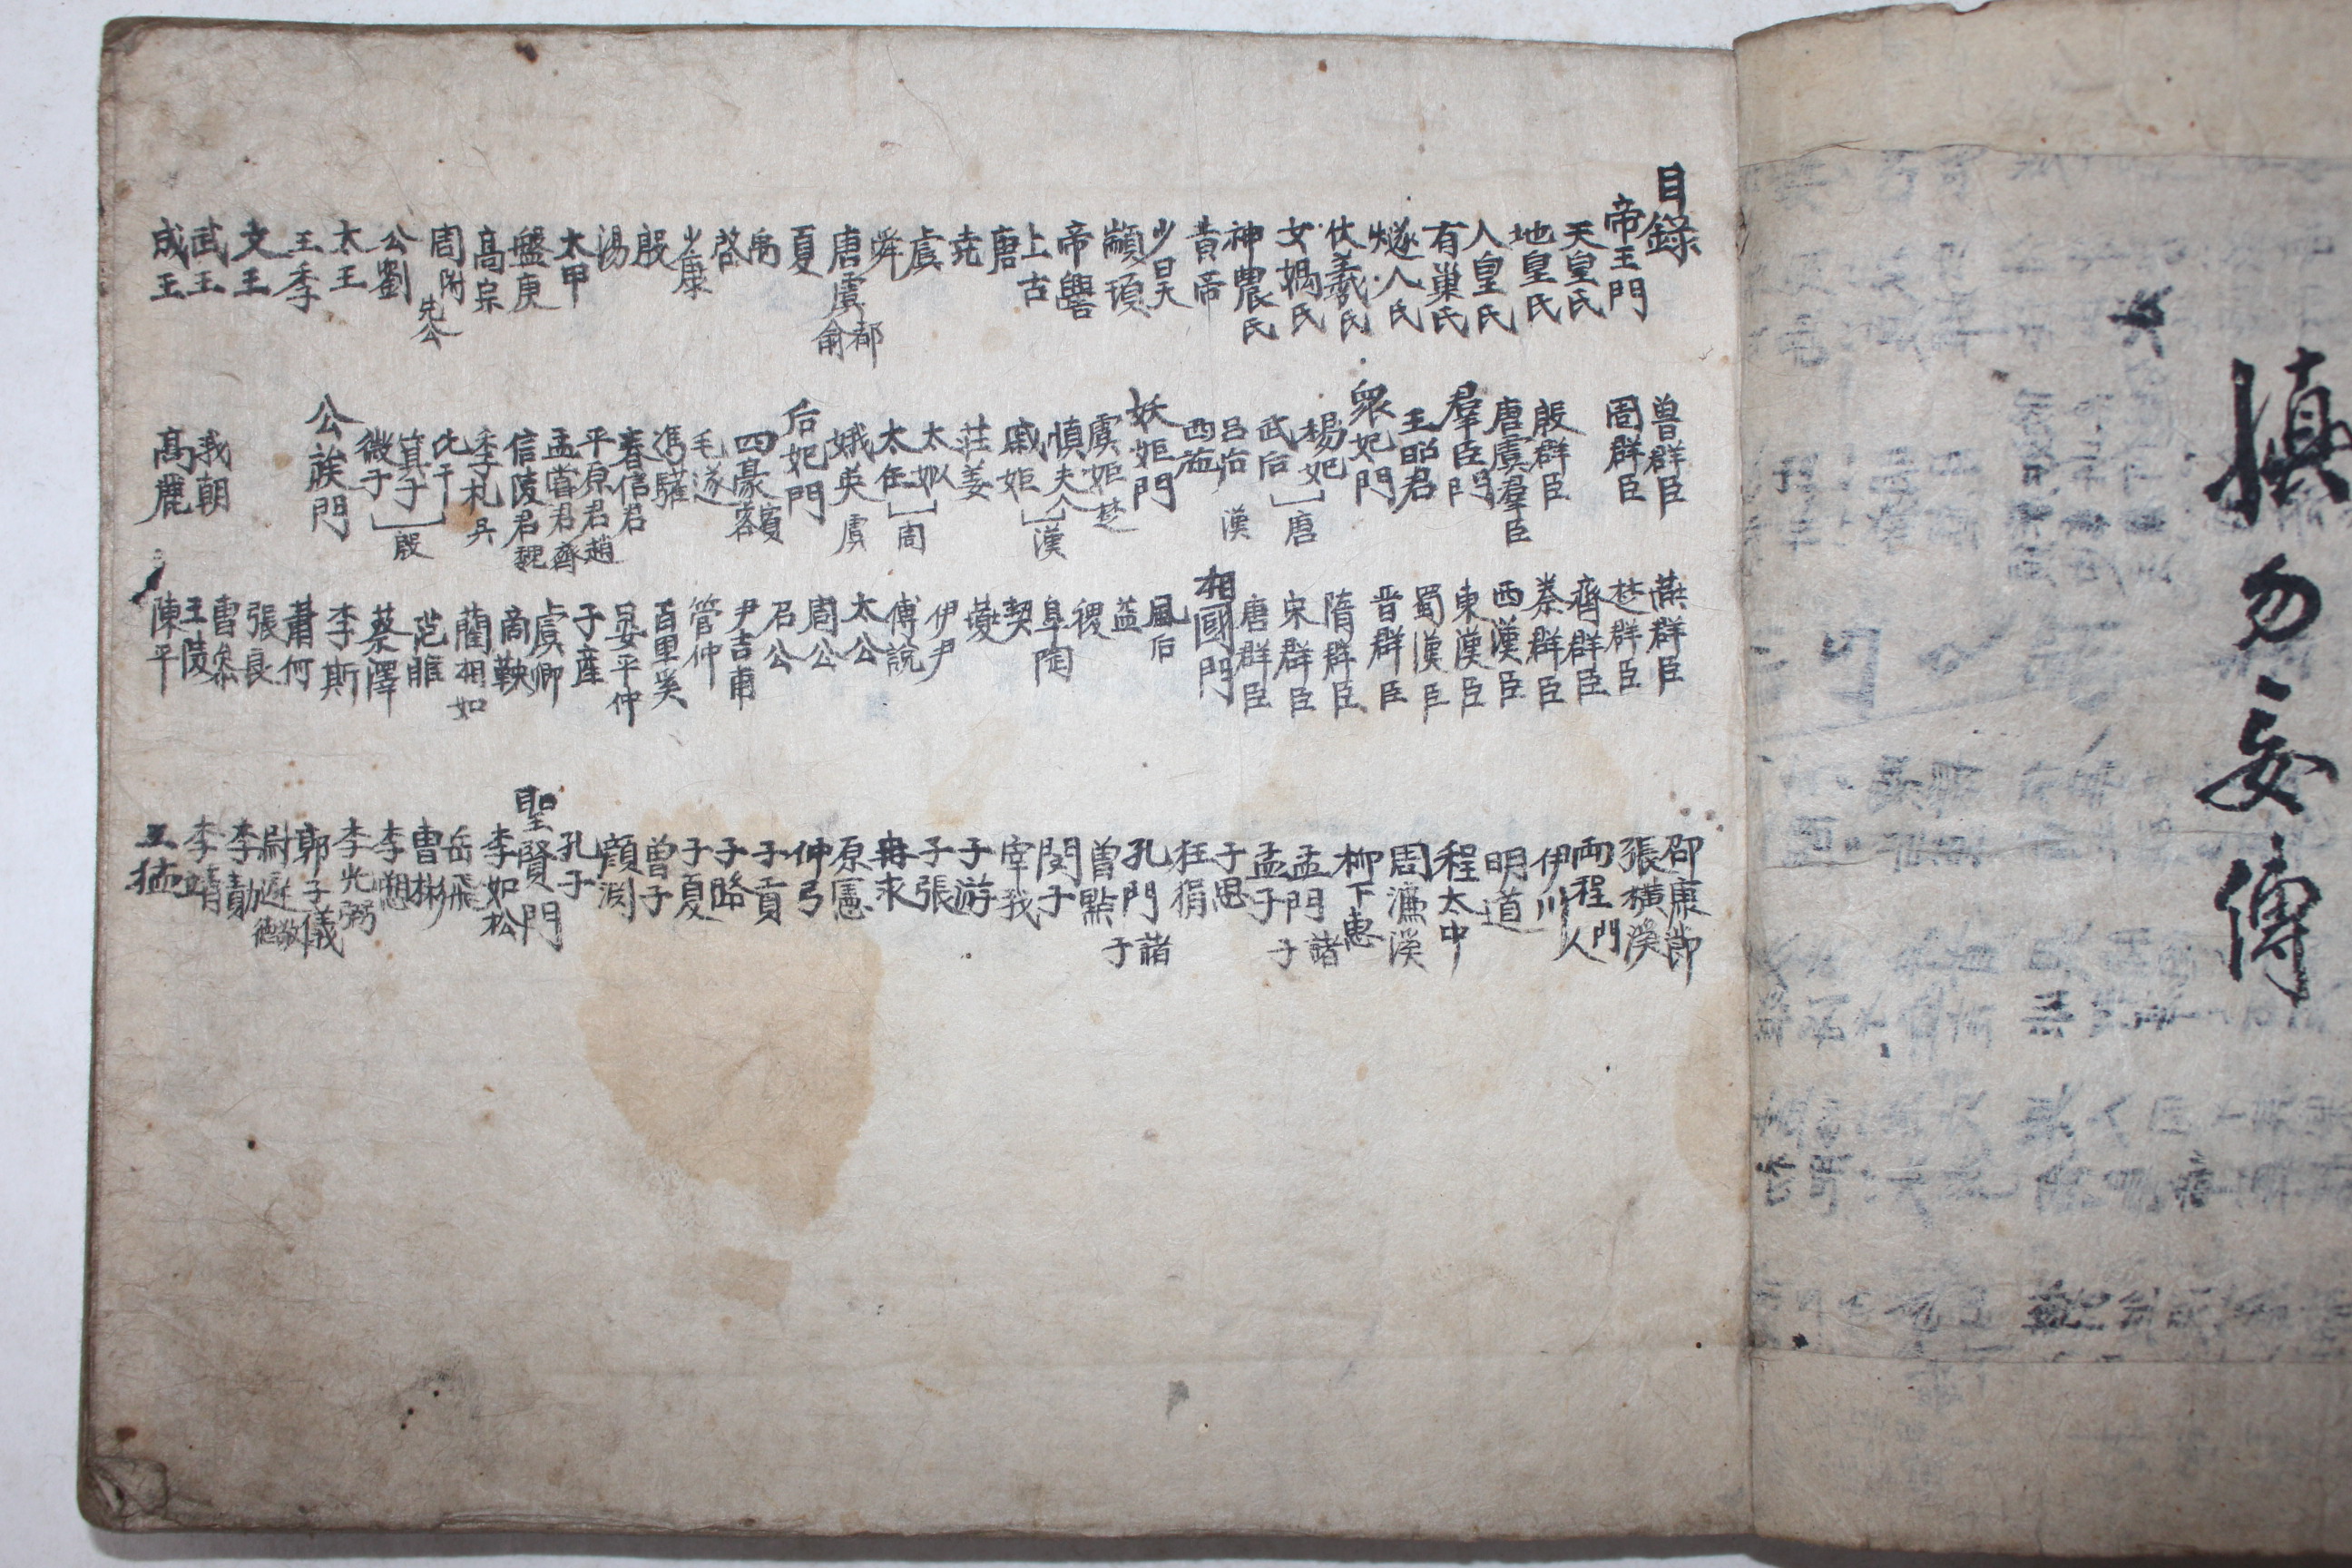 慎勿妄傳
目錄
帝王門
天皇氏
地皇氏
人皇氏
有巢氏
燧人氏
伏羲氏
女媧氏
神農氏
黃帝
少昊
顓頊
帝嚳
上古
唐
堯
虞
舜
唐虞都俞
夏
禹
啓
少康
殷
湯
太甲
盤庚
高宗
周附先公
公劉
太王
王季
文王
武王
成王
群臣
周群臣
殷群臣
唐虞羣臣
羣臣門
王昭君
衆妃門
楊妃
武后
唐
呂后 漢
西施
妖姬門
虞姬 楚
慎夫人
戚姬
漢
莊姜
太姒
太任
周
娥英 虞
后妃門
四豪賓客
毛遂
馮驩
春信君
平原君趙
孟嘗君齊
信陵君魏
季札吳
比干
箕子
微子
殷
公族門
我朝
高麗
燕群臣
楚群臣
齊群臣
秦群臣
西漢臣
東漢臣
蜀漢臣
晋群臣
隋群臣
宋群臣
唐群臣
相國門
風后
益
稷
皐陶
契
夔
伊尹
傅說
太公
周公
召公
尹吉甫
管仲
百里奚
晏平仲
子產
虞卿
商鞅
藺相如
范睢
蔡澤
李斯
蕭何
張良
曹參
王陵
陳平
邵康節
張橫溪
兩程門人
伊川
明道
程太中
周濂溪
柳下惠
孟門諸子
孟子
子思
狂狷
孔門諸子
曾點
閔子
宰我
子游
子張
冉求
原憲
仲弓
子貢
子路
子夏
曾子
顔淵
孔子
聖賢門
李如松
岳飛
曹彬
李愬
李光弼
郭子儀
尉遲敬德
李勣
李靖
王猛